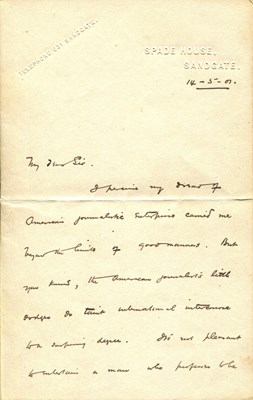 TELEPHONE SANDGATE.
SPADE HOUSE,
SANDGATE.
14-5-01.
My Dear Sir.
I perceive my dread of
American journalistic enterprise carried me
beyond the limits of good manners. But
you know, the American journalist's little
dodges do taint international intercourse
to a surprising degree. It's not pleasant
to entertain a man who professes to be